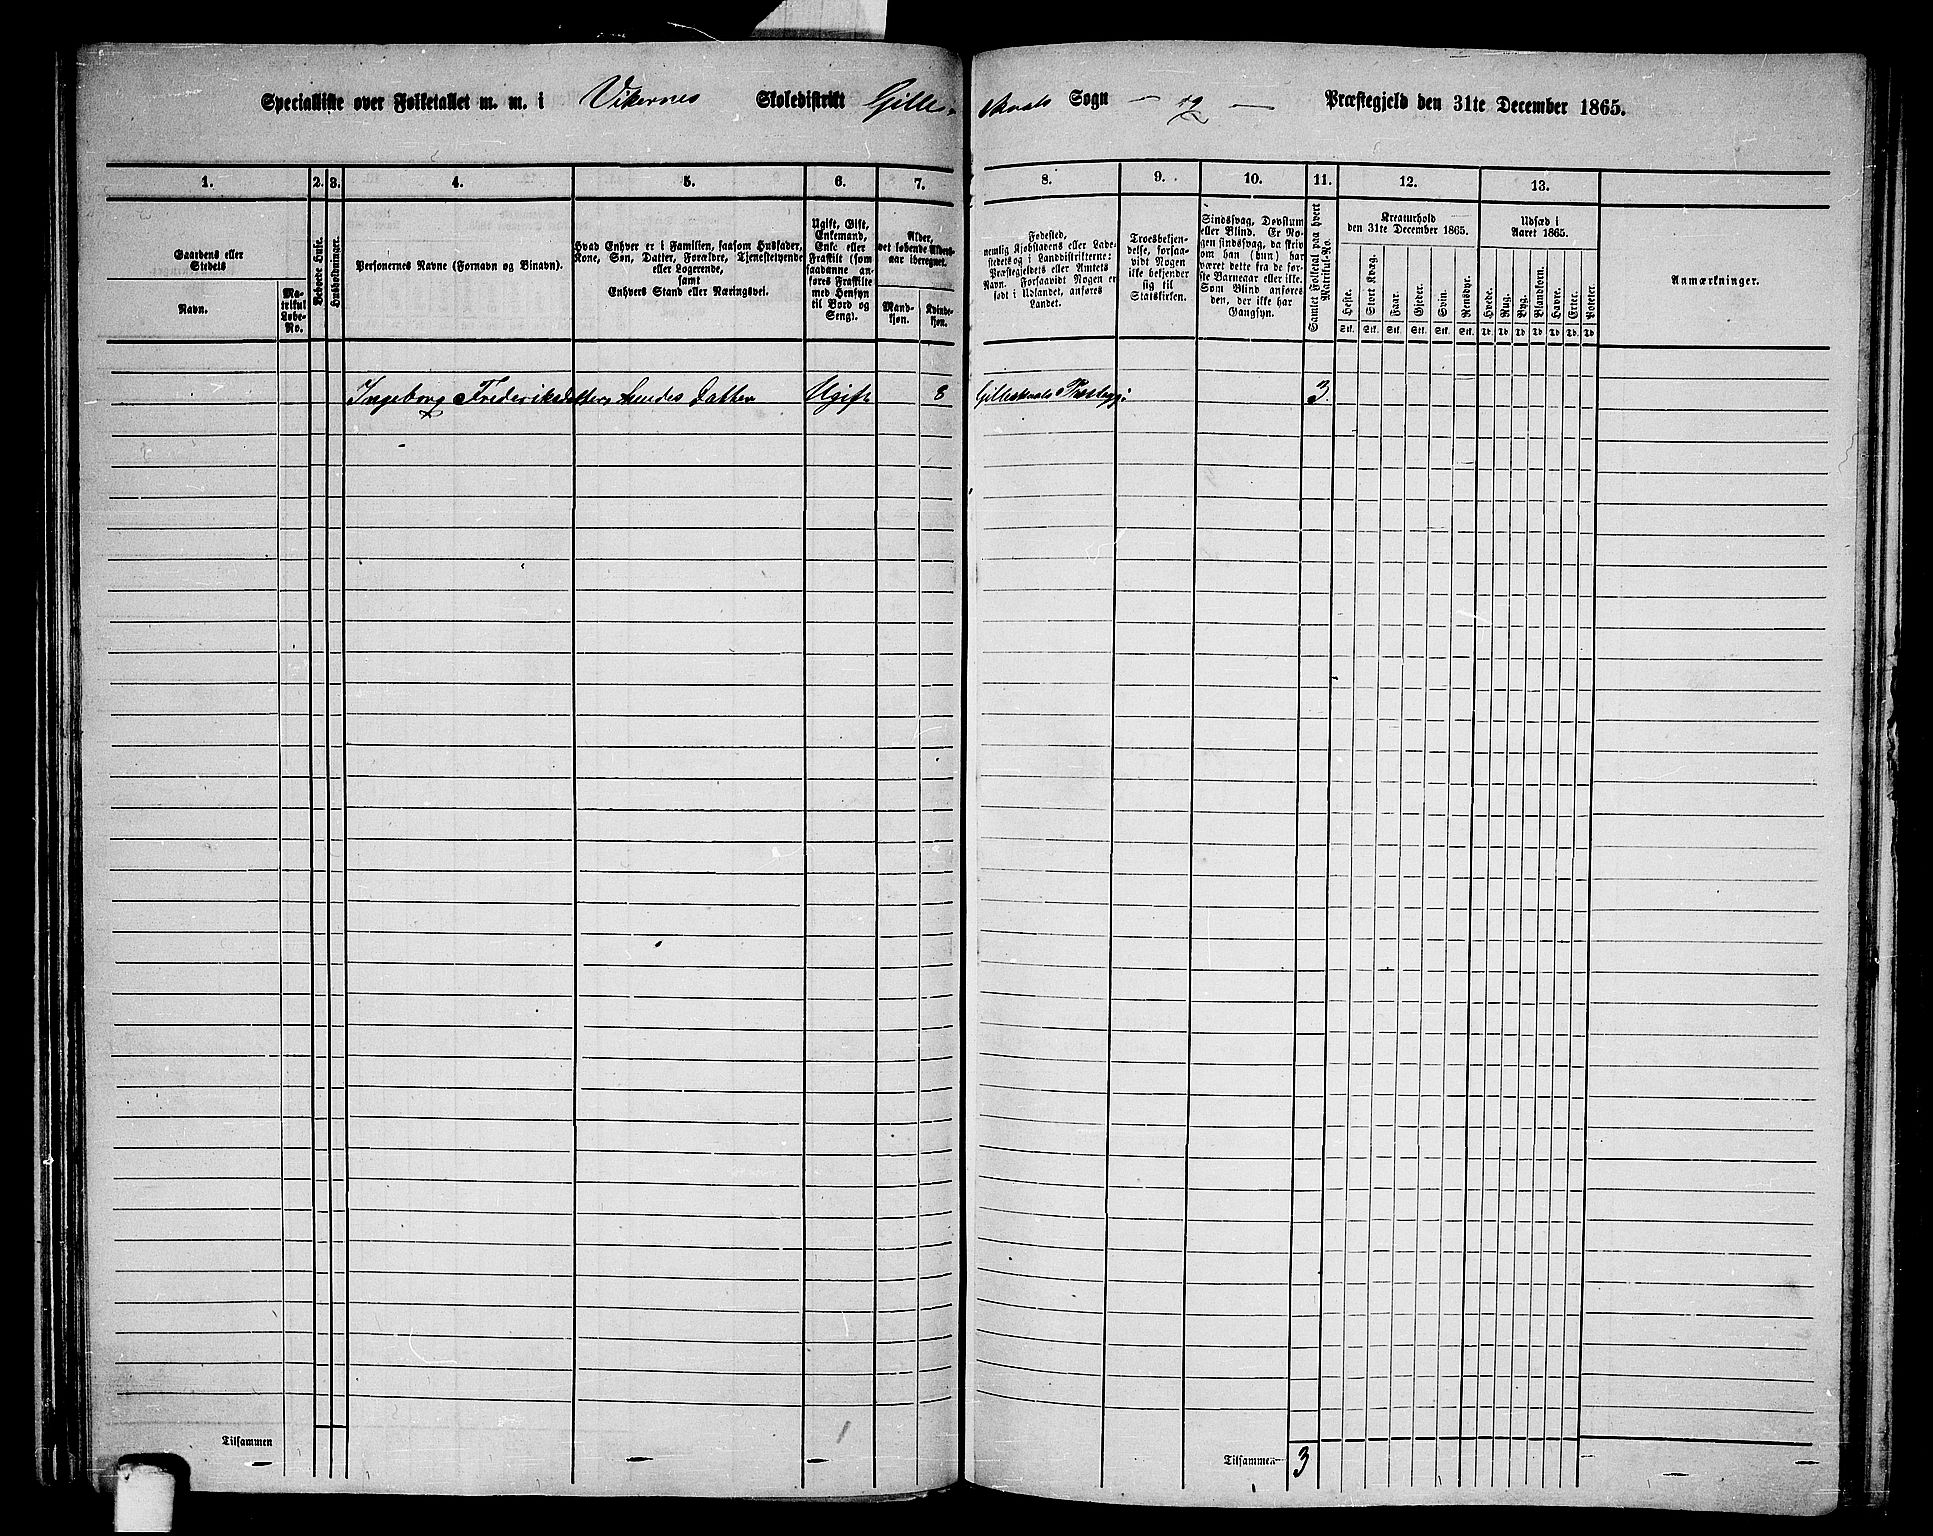 Specialliste over Folketallet m. m. i Vikernes Skoledistrikt Gilles- kaals Sogn — og — Præstegjeld den 31te December 1865.
1. 2. 3. 4. 5. 6. 7. 8. 9. 10. 11. 12. 13.
Gaardens eller Stedets
Navn.
Matrikul Løbe-No.
Beboede Huse.
Husholdninger.
Personernes Navne (Fornavn og Binavn).
Hvad Enhver er i Familien, saasom Husfader,
Kone, Søn, Datter, Forældre, Tjenestetyende
eller Logerende,
samt
Enhvers Stand eller Næringsvei.
Ugift, Gift,
Enkemand,
Enke eller
Fraskilt (som
saadanne an-
føres Fraskilte
med Hensyn
til Bord og
Seng).
Alder,
det løbende Alders-
aar iberegnet.
Mand-
kjøn.
Kvinde-
kjøn.
Fødested,
nemlig Kjøbstadens eller Lade-
stedets og i Landdistrikterne:
Præstegjeldets eller Amtets
Navn. Forsaavidt Nogen er
født i Udlandet, anføres
Landet.
Troesbekjen-
delse, forsaa-
vidt Nogen
ikke bekjender
sig til
Statskirken.
Sindssvag, Døvstum
eller Blind. Er No-
gen sindssvag, da skriv
om han (hun) har
været dette fra de før-
ste Barneaar eller ikke.
Som Blind anføres
den, der ikke har
Gangsyn.
Samlet Folketal paa hvert Matrikul-No.
Kreaturhold
den 31te December 1865.
Heste. Stort Kvæg. Faar. Gjeder. Svin. Rensdyr.
Stk. Stk. Stk. Stk. Stk. Stk.
Udsæd i
Aaret 1865.
Hvede. Rug. Byg. Blandkorn. Havre. Erter. Poteter.
Td. Td. Td. Td. Td. Td. Td.
Anmærkninger.
Ingeborg Frederiksdatter Hendes Datter Ugift 8 Gilleskaals Prestegj: 3.
Tilsammen Tilsammen 3